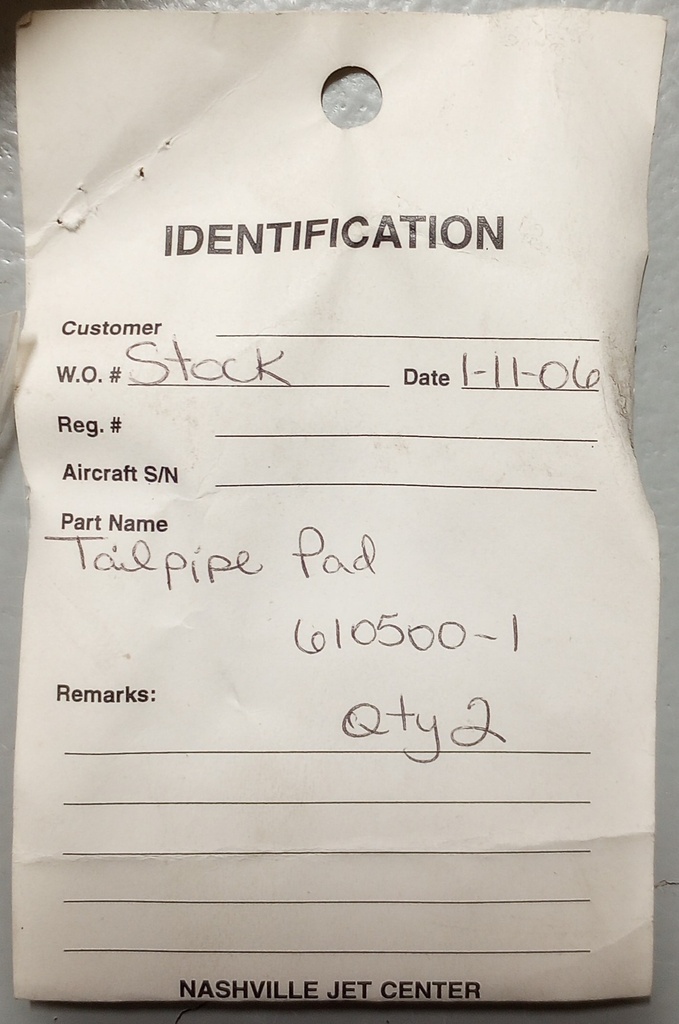 IDENTIFICATION
Customer
W.O. # Stock Date 1-11-06
Reg. #
Aircraft S/N
Part Name
Tailpipe Pad
610500-1
Remarks:
Qty 2
NASHVILLE JET CENTER